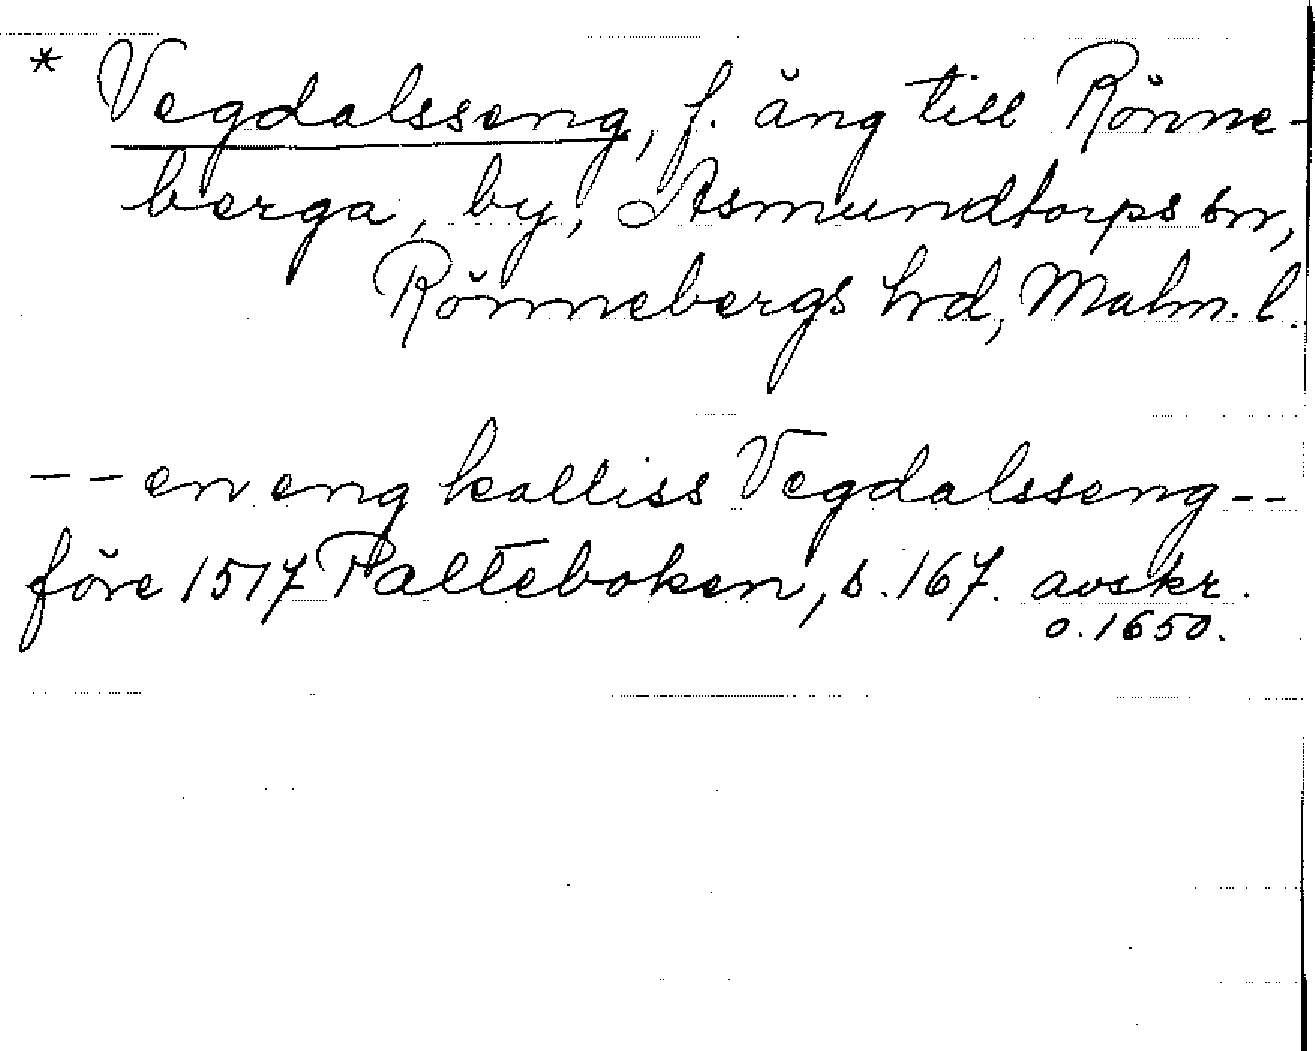 * Vegdalsseng, f. äng till Rönne-
berga, by, Asmundtorps sn,
Rönnebergs hrd, Malm. l.
-- en eng kalliss Vegdalsseng --
före 1517 Palteboken, s. 167. avskr.
o. 1650.